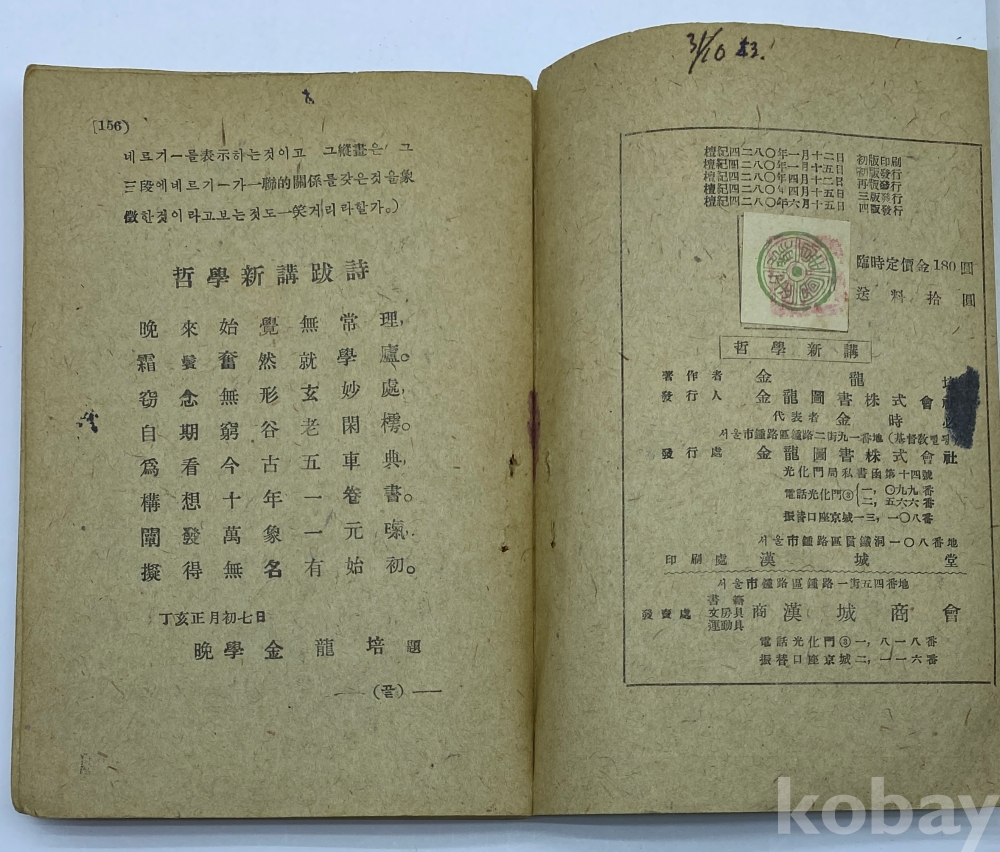 (156)
네르기ー를表示하는것이고 그縱畫은 그
三段에네르기ー가一聯的關係를갖은것을象
徵한것이라고보는것도一笑게리라할가。)
哲學新講跋詩
晩來始覺無常理,
霜鬢奮然就學廬。
窃念無形玄妙處,
自期窮谷老閑樗。
爲看今古五車典,
構想十年一卷書。
闡發萬象一元氣,
擬得無名有始初。
丁亥正月初七日
晩學金龍培題
——(끝)——
檀紀四二八〇年一月十二日 初版印刷
檀紀四二八〇年一月十五日 初版發行
檀紀四二八〇年四月十二日 再版發行
檀紀四二八〇年四月十五日 三版發行
檀紀四二八〇年六月十五日 四版發行
臨時定價金180圓
送料拾圓
哲學新講
著作者 金龍培
發行人 金龍圖書株式會社
代表者 金時必
서울市鍾路區鍾路二街九一番地(基督敎
發行處 金龍圖書株式會社
光化門局私書函第十四號
電話光化門③{一,〇九九番
二,五六六番
振替口座京城一三,一〇八番
서울市鍾路區貫鐵洞一〇八番地
印刷處 漢城堂
서울市鍾路區鍾路一街五四番地
發賣處 書籍 文房具 運動具 商漢城商會
電話光化門③一,八一八番
振替口座京城二,一一六番
kobay